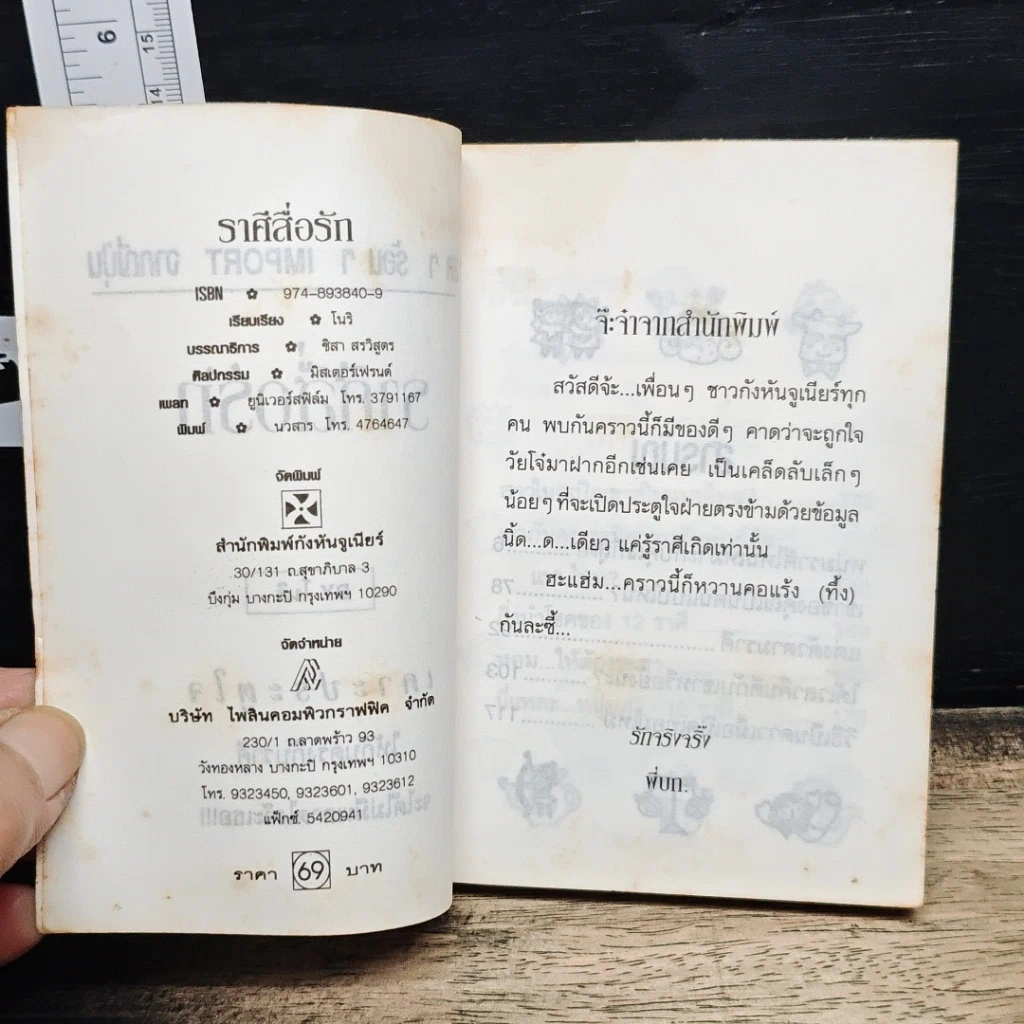 6
15
14
ราศีสื่อรัก
ISBN ✿ 974-893840-9
เรียบเรียง ✿ โนริ
บรรณาธิการ ✿ ชิสา สรวิสูตร
ศิลปกรรม ✿ มิสเตอร์เฟรนด์
เพลท ✿ ยูนิเวอร์สฟิล์ม โทร. 3791167
พิมพ์ ✿ นวสาร โทร. 4764647
จัดพิมพ์
สำนักพิมพ์กังหันจูเนียร์
30/131 ถ.สุขาภิบาล 3
บึงกุ่ม บางกะปิ กรุงเทพฯ 10290
จัดจำหน่าย
บริษัท ไพลินคอมพิวกราฟฟิค จำกัด
230/1 ถ.ลาดพร้าว 93
วังทองหลาง บางกะปิ กรุงเทพฯ 10310
โทร. 9323450, 9323601, 9323612
แฟ็กซ์. 5420941
ราคา 69 บาท
จ๊ะจ๋าจากสำนักพิมพ์
สวัสดีจ้ะ...เพื่อนๆ ชาวกังหันจูเนียร์ทุก
คน พบกันคราวนี้ก็มีของดีๆ คาดว่าจะถูกใจ
วัยโจ๋มาฝากอีกเช่นเคย เป็นเคล็ดลับเล็กๆ
น้อยๆที่จะเปิดประตูใจฝ่ายตรงข้ามด้วยข้อมูล
นิ้ด...ด...เดียว แค่รู้ราศีเกิดเท่านั้น
ฮะแฮ่ม...คราวนี้ก็หวานคอแร้ง (ทึ้ง)
กันละซี้...
รักจริงจริ๊ง
พี่บก.